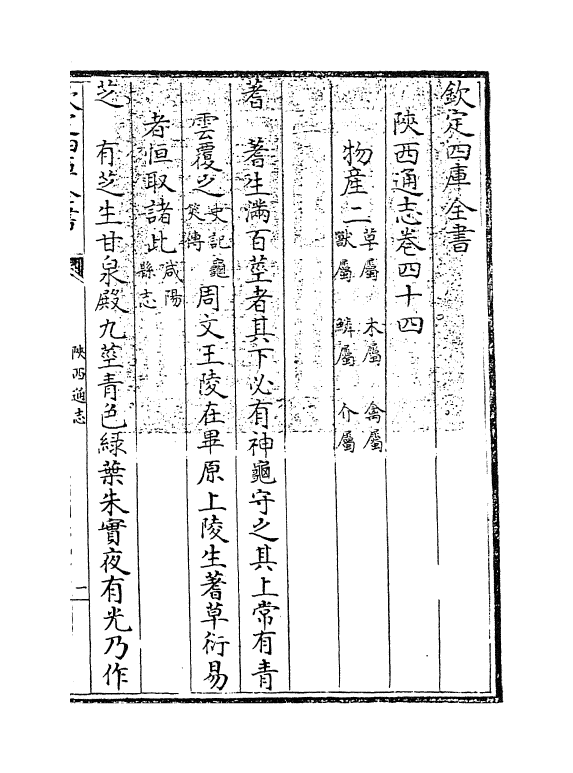 欽定四庫全書
陝西通志卷四十四
物産二草屬 木屬 禽屬
獸屬 鱗屬 介屬
蓍 蓍生滿百莖者其下必有神龜守之其上常有青
雲覆之史記龜筴傳周文王陵在畢原上陵生蓍草衍易
者恒取諸此咸陽縣志
芝 有芝生甘泉殿九莖青色緑葉朱實夜有光乃作
陝西通志